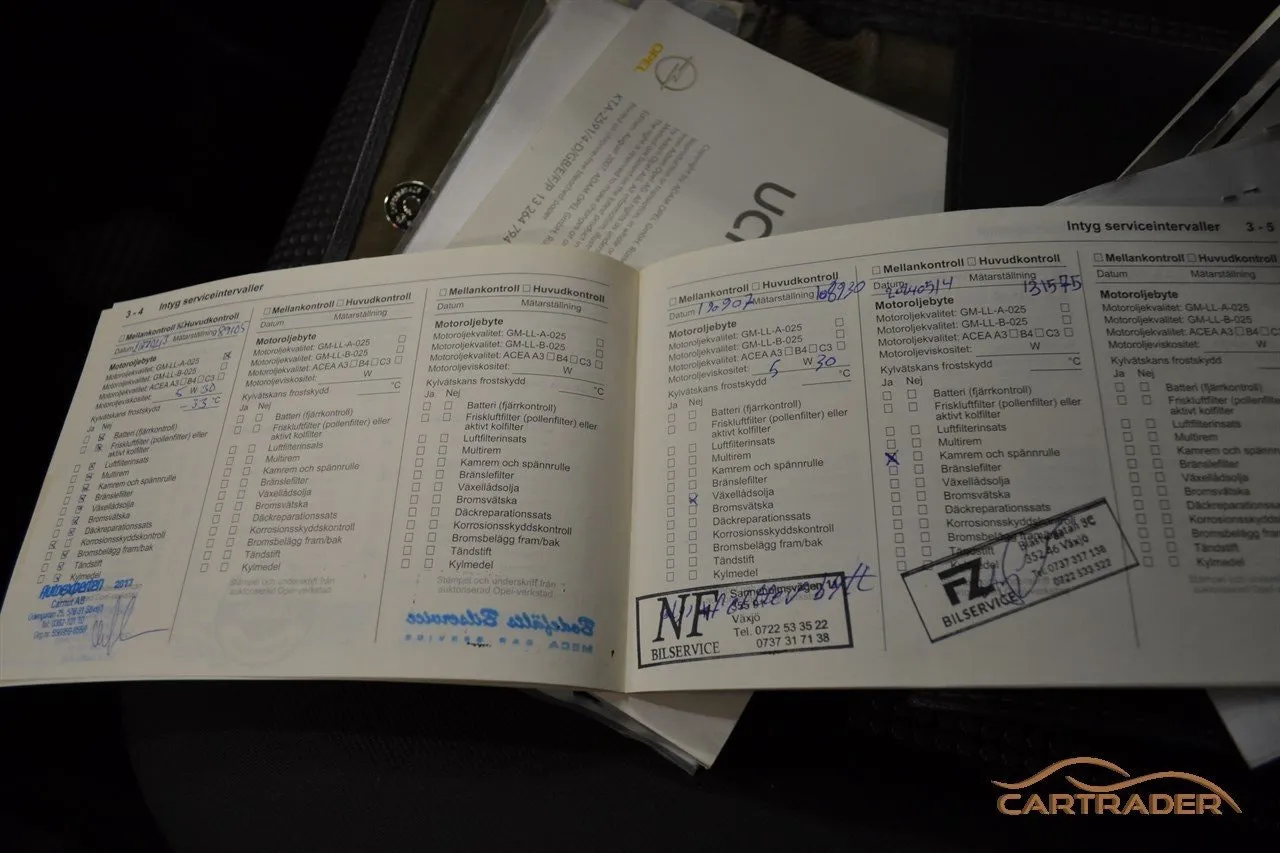 OPEL
KTA-2591/4-D/GB/E/F/P 13 264 794
UCH
3 - 4 Intyg serviceintervaller
Mellankontroll Huvudkontroll
Datum Mätarställning 89105
Motoroljebyte
Motoroljekvalitet: GM-LL-A-025
Motoroljekvalitet: GM-LL-B-025
Motoroljekvalitet: ACEA A3 B4 C3
Motoroljeviskositet: 5 W 30
Kylvätskans frostskydd -33 °C
Ja Nej
Batteri (fjärrkontroll)
Friskluftfilter (pollenfilter) eller
aktivt kolfilter
Luftfilterinsats
Multirem
Kamrem och spännrulle
Bränslefilter
Växellådsolja
Bromsvätska
Däckreparationssats
Korrosionsskyddskontroll
Bromsbelägg fram/bak
Tändstift
Kylmedel
Autoexperten 2012
Carnut AB
Mellankontroll Huvudkontroll
Datum Mätarställning
Motoroljebyte
Motoroljekvalitet: GM-LL-A-025
Motoroljekvalitet: GM-LL-B-025
Motoroljekvalitet: ACEA A3 B4 C3
Motoroljeviskositet: W
Kylvätskans frostskydd °C
Ja Nej
Batteri (fjärrkontroll)
Friskluftfilter (pollenfilter) eller
aktivt kolfilter
Luftfilterinsats
Multirem
Kamrem och spännrulle
Bränslefilter
Växellådsolja
Bromsvätska
Däckreparationssats
Korrosionsskyddskontroll
Bromsbelägg fram/bak
Tändstift
Kylmedel
Stämpel och underskrift från
auktoriserad Opel-verkstad
Mellankontroll Huvudkontroll
Datum Mätarställning
Motoroljebyte
Motoroljekvalitet: GM-LL-A-025
Motoroljekvalitet: GM-LL-B-025
Motoroljekvalitet: ACEA A3 B4 C3
Motoroljeviskositet: W
Kylvätskans frostskydd °C
Ja Nej
Batteri (fjärrkontroll)
Friskluftfilter (pollenfilter) eller
aktivt kolfilter
Luftfilterinsats
Multirem
Kamrem och spännrulle
Bränslefilter
Växellådsolja
Bromsvätska
Däckreparationssats
Korrosionsskyddskontroll
Bromsbelägg fram/bak
Tändstift
Kylmedel
Stämpel och underskrift från
auktoriserad Opel-verkstad
Bilservice
MECA CAR SERVICE
Intyg serviceintervaller 3 - 5
Mellankontroll Huvudkontroll
Datum 120907 Mätarställning 168930
Motoroljebyte
Motoroljekvalitet: GM-LL-A-025
Motoroljekvalitet: GM-LL-B-025
Motoroljekvalitet: ACEA A3 B4 C3
Motoroljeviskositet: 5 W 30
Kylvätskans frostskydd °C
Ja Nej
Batteri (fjärrkontroll)
Friskluftfilter (pollenfilter) eller
aktivt kolfilter
Luftfilterinsats
Multirem
Kamrem och spännrulle
Bränslefilter
Växellådsolja
Bromsvätska
Däckreparationssats
Korrosionsskyddskontroll
Bromsbelägg fram/bak
Tändstift
Kylmedel
NF
BILSERVICE
Växjö
Tel. 0722 53 35 22
0737 31 71 38
Mellankontroll Huvudkontroll
Datum Mätarställning
131575
Motoroljebyte
Motoroljekvalitet: GM-LL-A-025
Motoroljekvalitet: GM-LL-B-025
Motoroljekvalitet: ACEA A3 B4 C3
Motoroljeviskositet: W
Kylvätskans frostskydd °C
Ja Nej
Batteri (fjärrkontroll)
Friskluftfilter (pollenfilter) eller
aktivt kolfilter
Luftfilterinsats
Multirem
Kamrem och spännrulle
Bränslefilter
Växellådsolja
Bromsvätska
Däckreparationssats
Korrosionsskyddskontroll
Bromsbelägg
Tändstift
Kylmedel
BILSERVICE
352 46 Växjö
Tel: 0737 317 138
0722 533 522
Mellankontroll Huvudkontroll
Datum Mätarställning
Motoroljebyte
Motoroljekvalitet: GM-LL-A-025
Motoroljekvalitet: GM-LL-B-025
Motoroljekvalitet: ACEA A3
Motoroljeviskositet:
Kylvätskans frostskydd
Ja Nej
Batteri (fjärrkontroll)
Friskluftfilter (pollenfilter)
aktivt kolfilter
Luftfilterinsats
Multirem
Kamrem och spännrulle
Bränslefilter
Växellådsolja
Bromsvätska
Däckreparationssats
Korrosionsskyddskontroll
Bromsbelägg fram/bak
Tändstift
Kylmedel
CARTRADER